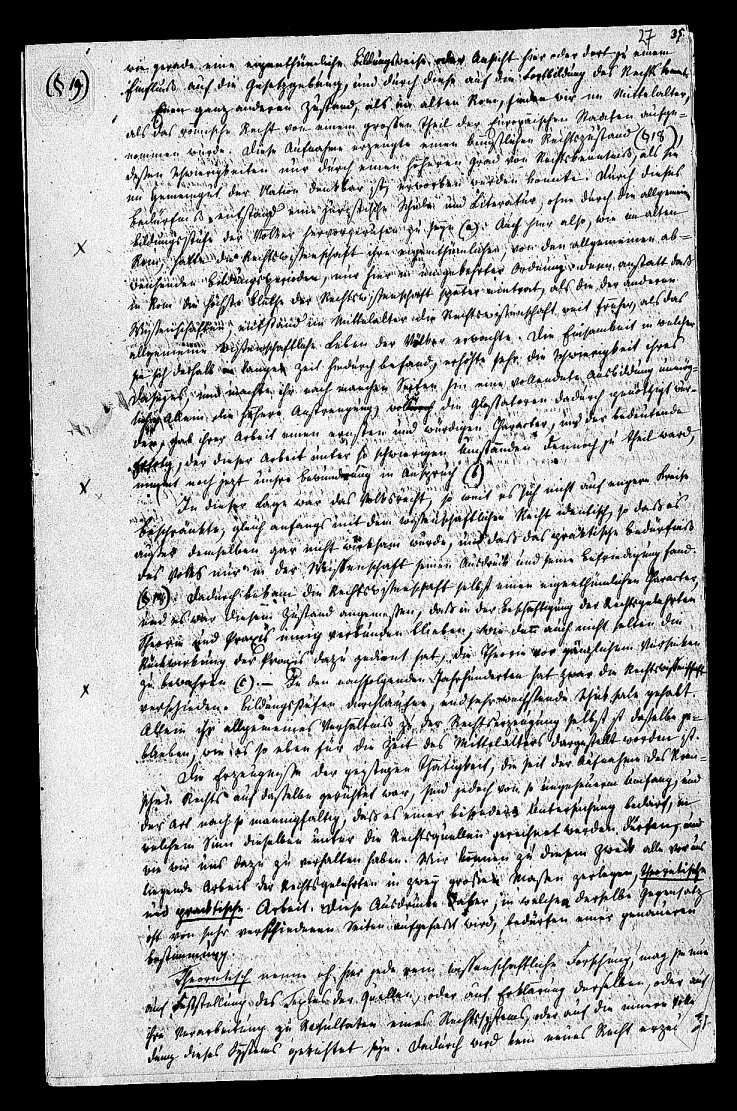 27 35
(§ 19)
wie gerade eine eigenthümliche Bildungsweise oder Ansicht hier oder dort zu einem
Einfluß auf die Gesetzgebung, und durch diese auf die Fortbildung des Rechts kommt
Einen ganz anderen Zustand, als im alten Rom, finden wir im Mittelalter,
als das römische Recht von einem großen Theil der Europäischen Nationen aufge-
nommen wurde. Diese Aufnahme erzeugte einen künstlichen Rechtszustand (§ 18),
dessen Schwierigkeiten nur durch einen höheren Grad von Rechtskenntniß, als sie
im Gemeingut der Nation denkbar ist, erworben werden konnte. Durch dieses
Bedürfniß entstand eine juristische Schule und Literatur, ohne durch die allgemeine
Bildungsstufe der Völker hervorgerufen zu seyn (a). Auch hier also, wie im alten
Rom, hatte die Rechtswissenschaft ihre eigenthümlichen, von den allgemeinen ab-
weichenden Bildungsperioden, nur hier in umgekehrter Ordnung. Denn anstatt daß
in Rom die höchste Blüthe der Rechtswissenschaft später eintrat, als die der anderen
Wissenschaften, entstand im Mittelalter die Rechtswissenschaft weit früher, als das
allgemeine wissenschaftliche Leben der Völker erwachte. Die Einsamkeit in welcher
sie sich deshalb lange Zeit hindurch befand, erhöhte sehr die Schwierigkeit ihres
Daseyns, und machte ihr nach manchen Seiten hin eine vollendete Ausbildung unmög-
lich; allein die höhere Anstrengung, wozu die Glossatoren dadurch genöthigt wur-
den, gab ihrer Arbeit einen ernsten und würdigen Character, und der bedeutende
Erfolg, der dieser Arbeit unter so schwierigen Umständen dennoch zu Theil ward,
nimmt noch jetzt unsre Bewunderung in Anspruch (b).
In dieser Lage war das Volksrecht, so weit es sich nicht auf engere Kreise
beschränkte, gleich anfangs mit dem wissenschaftlichen Recht identisch, so daß es
außer demselben gar nicht wirksam wurde, und daß das praktische Bedürfniß
des Volks nur in der Wissenschaft seinen Ausdruck und seine Befriedigung fand.
Dadurch bekam die Rechtswissenschaft selbst einen eigenthümlichen Character,
und es war diesem Zustand angemessen, daß in der Beschäftigung der Rechtsgelehrten
Theorie und Praxis innig verbunden blieben, wie denn auch nicht selten die
Rückwirkung der Praxis dazu gedient hat, die Theorie vor gänzlichem Versinken
zu bewahren (c). — In den nachfolgenden Jahrhunderten hat zwar die Rechtswissenschaft
verschiedene Bildungsstufen durchlaufen, und sehr wechselnde Schicksale gehabt.
Allein ihr allgemeines Verhältniß zu der Rechtserzeugung selbst ist dasselbe ge-
blieben, wie es so eben für die Zeit des Mittelalters dargestellt worden ist.
Die Erzeugnisse der geistigen Thätigkeit, die seit der Aufnahme des Römi-
schen Rechts auf dasselbe gerichtet war, sind jedoch von so ungeheurem Umfang, und
der Art nach so mannigfaltig, daß es einer besonderen Untersuchung bedarf, in
welchem Sinn dieselben unter die Rechtsquellen gerechnet werden dürfen, und
wie wir uns dazu zu verhalten haben. Wir können zu diesem Zweck alle vor uns
liegende Arbeit der Rechtsgelehrten in zwey große Massen zerlegen, theoretische
und practische Arbeit. Diese Ausdrücke daher, in welchen derselbe Gegensatz
oft von sehr verschiedenen Seiten aufgefaßt wird, bedürfen einer genaueren
Bestimmung.
Theoretisch nenne ich hier jede rein wissenschaftliche Forschung, mag sie nun
auf Feststellung des Textes der Quellen, oder auf Erklärung derselben, oder auf
ihre Verarbeitung zu Resultaten eines Rechtssystems, oder auf die innere Vollen-
dung dieses Systems gerichtet seyn. Dadurch wird kein neues Recht erzeu